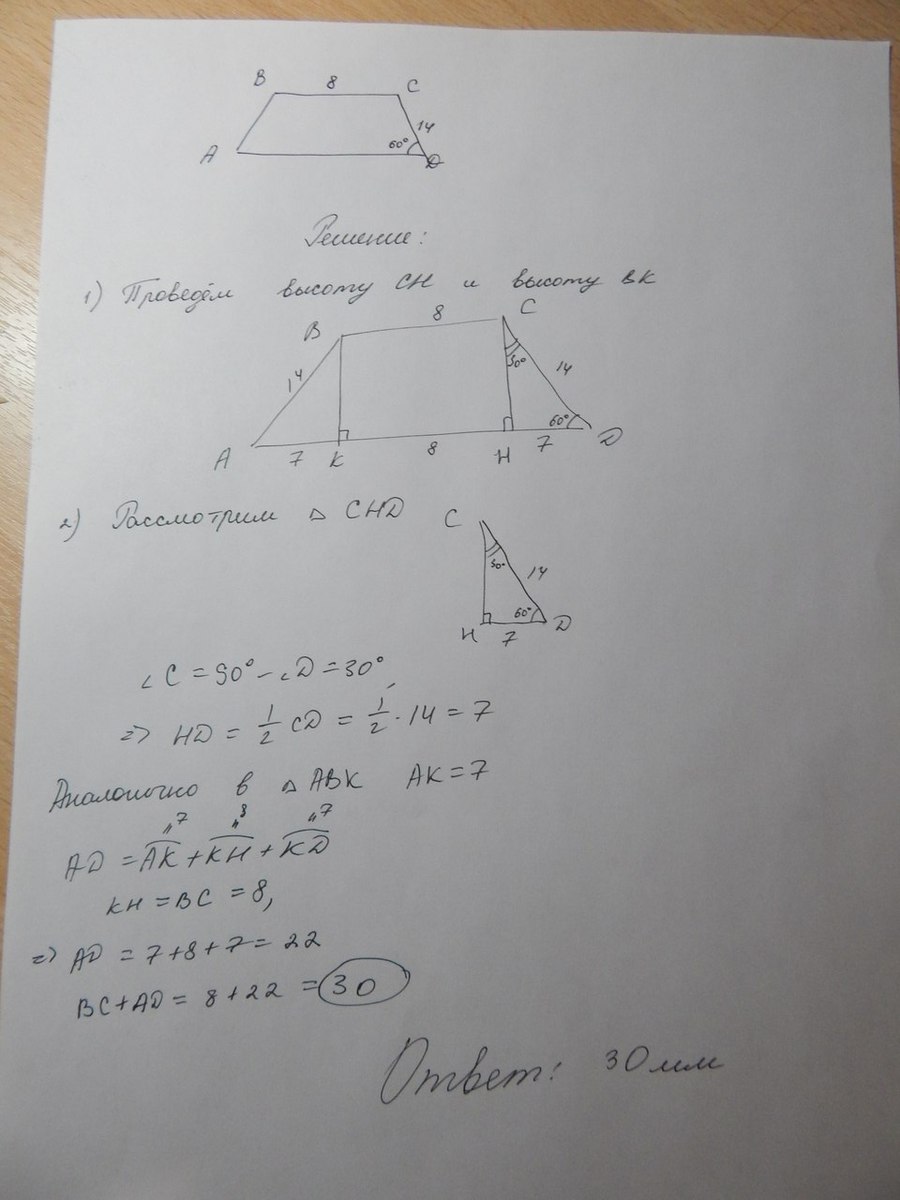 B 8 C
14
60°
A D
Решение:
1) Проведём высоту CH и высоту BK
B 8 C
14 30° 14
60°
A 7 K 8 H 7 D
2) Рассмотрим △ CHD
C
30° 14
60°
H 7 D
∠C = 90° - ∠D = 30°
=> HD = 1/2 CD = 1/2 · 14 = 7
Аналогично в △ ABK AK = 7
"7 "8 "7
AD = AK + KH + KD
KH = BC = 8,
=> AD = 7+8+7 = 22
BC + AD = 8 + 22 = 30
Ответ: 30 мм